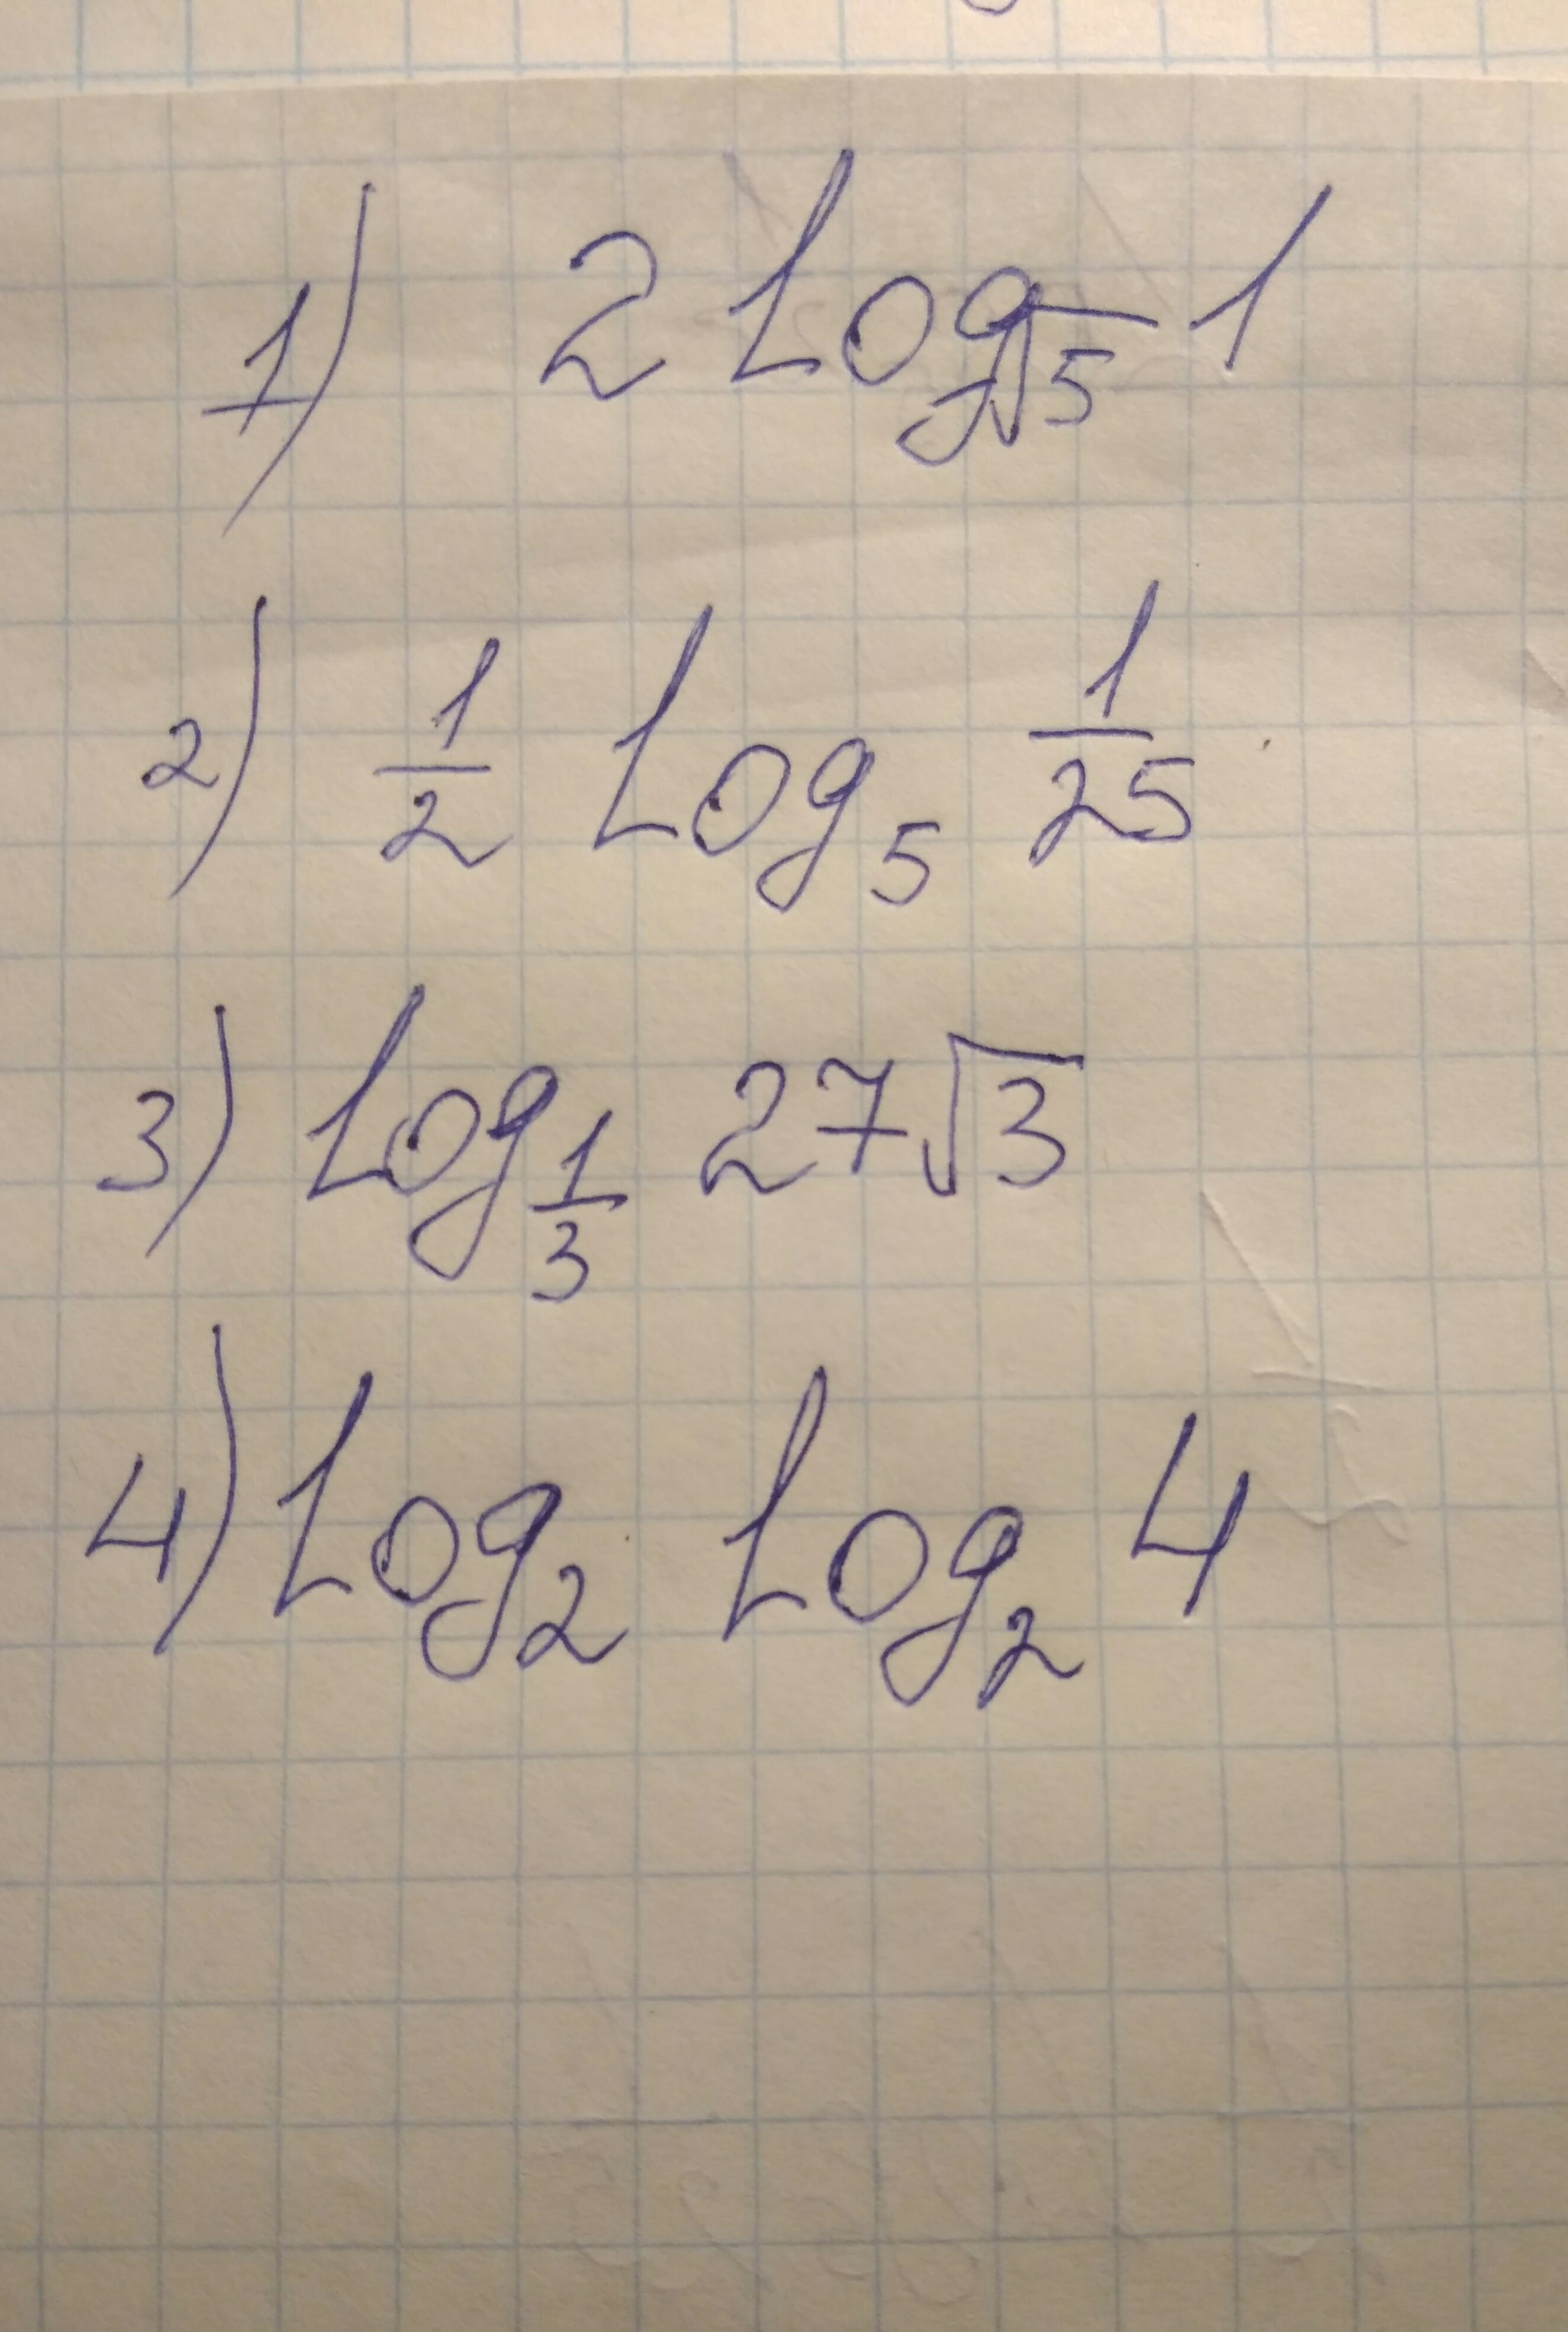 1) 2 log_√5 1
2) 1/2 log_5 1/25
3) log_1/3 27√3
4) log_2 log_2 4